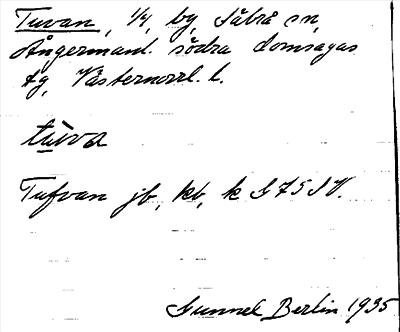 Tuvan, 1/4, by, Säbrå sn,
Ångermanl. södra domsagas
tg, Västernorrl. l.
tùva
Tufvan jb, kb, k G 75 SV.
Gunnel Berlin 1935